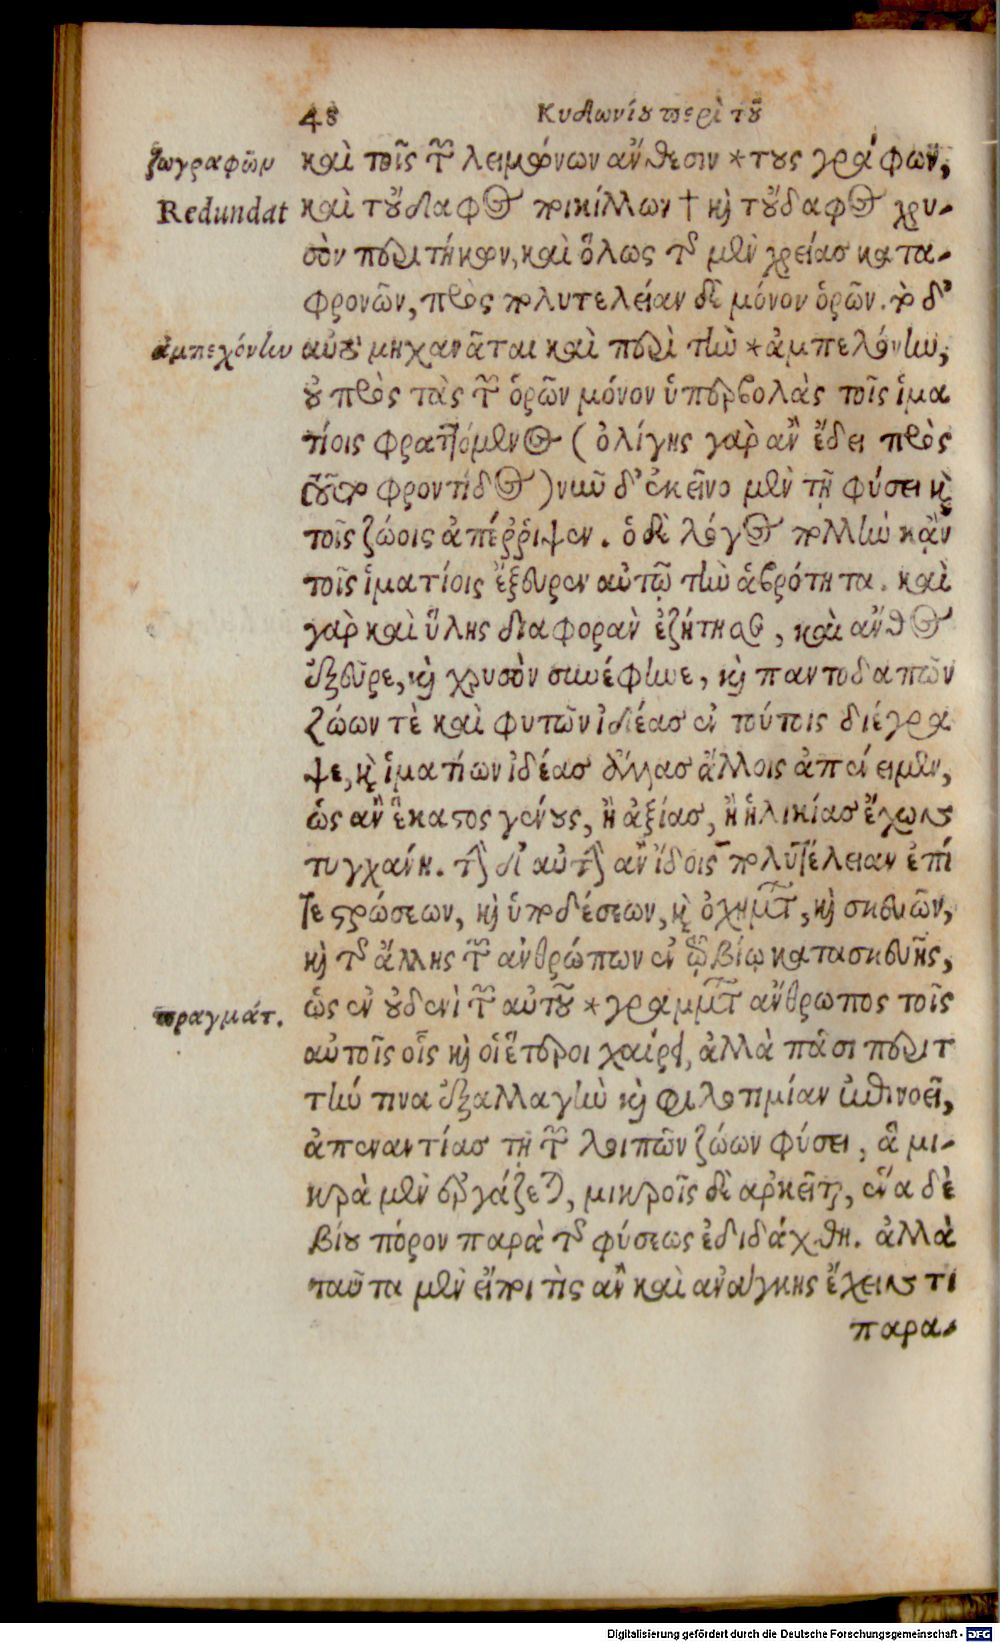 48 Κυδωνίου περὶ τοῦ
ζωγραφῶν
καὶ τοῖς τῶν λειμώνων ἄνθεσιν *τους γράφων,
Redundat
καὶ τοὔδαφος ποικίλλων † καὶ τοὔδαφος χρυ-
σὸν περιτήκων, καὶ ὅλως τῆς μὲν χρείας κατα-
φρονῶν, πρὸς πολυτελείαν δὲ μόνον ὁρῶν. τὸ δ'
ἀμπεχόνην
αὐτὸ μηχανᾶται καὶ περὶ τὴν *ἀμπελόνην,
οὐ πρὸς τὰς τῶν ὁρῶν μόνον ὑπερβολὰς τοῖς ἱμα
τίοις φραττόμενος (ὀλίγης γὰρ ἂν ἔδει πρὸς
τοῦτο φροντίδος) νῦν δ' ἐκεῖνο μὲν τῇ φύσει καὶ
τοῖς ζώοις ἀπέῤῥιψεν. ὁ δὲ λόγος πολλὴν κἀν
τοῖς ἱματίοις ἐξεῦρεν αὐτῷ τὴν ἁβρότητα. καὶ
γὰρ καὶ ὕλης διαφορὰν ἐζήτησε, καὶ ἄνθος
ἐξεῦρε, καὶ χρυσὸν συνέφηνε, καὶ παντοδαπῶν
ζώων τὲ καὶ φυτῶν ἰδέας ἐν τούτοις διέγρα
ψε, καὶ ἱματίων ἰδέας ἄλλας ἄλλοις ἀπένειμεν,
ὡς ἂν ἕκαστος γένους, ἢ ἀξίας, ἢ ἡλικίας ἔχων
τυγχάνῃ. τὴν δ' αὐτὴν ἂν ἴδοις πολυτέλειαν ἐπί
τε στρώσεων, καὶ ὑποδέσεων, καὶ ὀχημάτων, καὶ σκευῶν,
καὶ τῆς ἄλλης τῶν ἀνθρώπων ἐν τῷ βίῳ κατασκευῆς,
πραγμάτ.
ὡς ἐν οὐδενὶ τῶν αὐτοῦ *γραμμάτων ἄνθρωπος τοῖς
αὐτοῖς οἷς καὶ οἱ ἕτεροι χαίρει, ἀλλὰ πᾶσι περιτ
τήν τινα ἐξαλλαγὴν καὶ φιλοτιμίαν ἐπινοεῖ,
ἀπεναντίας τῇ τῶν λοιπῶν ζώων φύσει, ἃ μι-
κρὰ μὲν ἐργάζεται, μικροῖς δὲ ἀρκεῖται, ἕνα δὲ
βίου πόρον παρὰ τῆς φύσεως ἐδιδάχθη. ἀλλὰ
ταῦτα μὲν εἴποι τὶς ἂν καὶ ἀνάγκης ἔχειν τι
παρα-
Digitalisierung gefördert durch die Deutsche Forschungsgemeinschaft - DFG